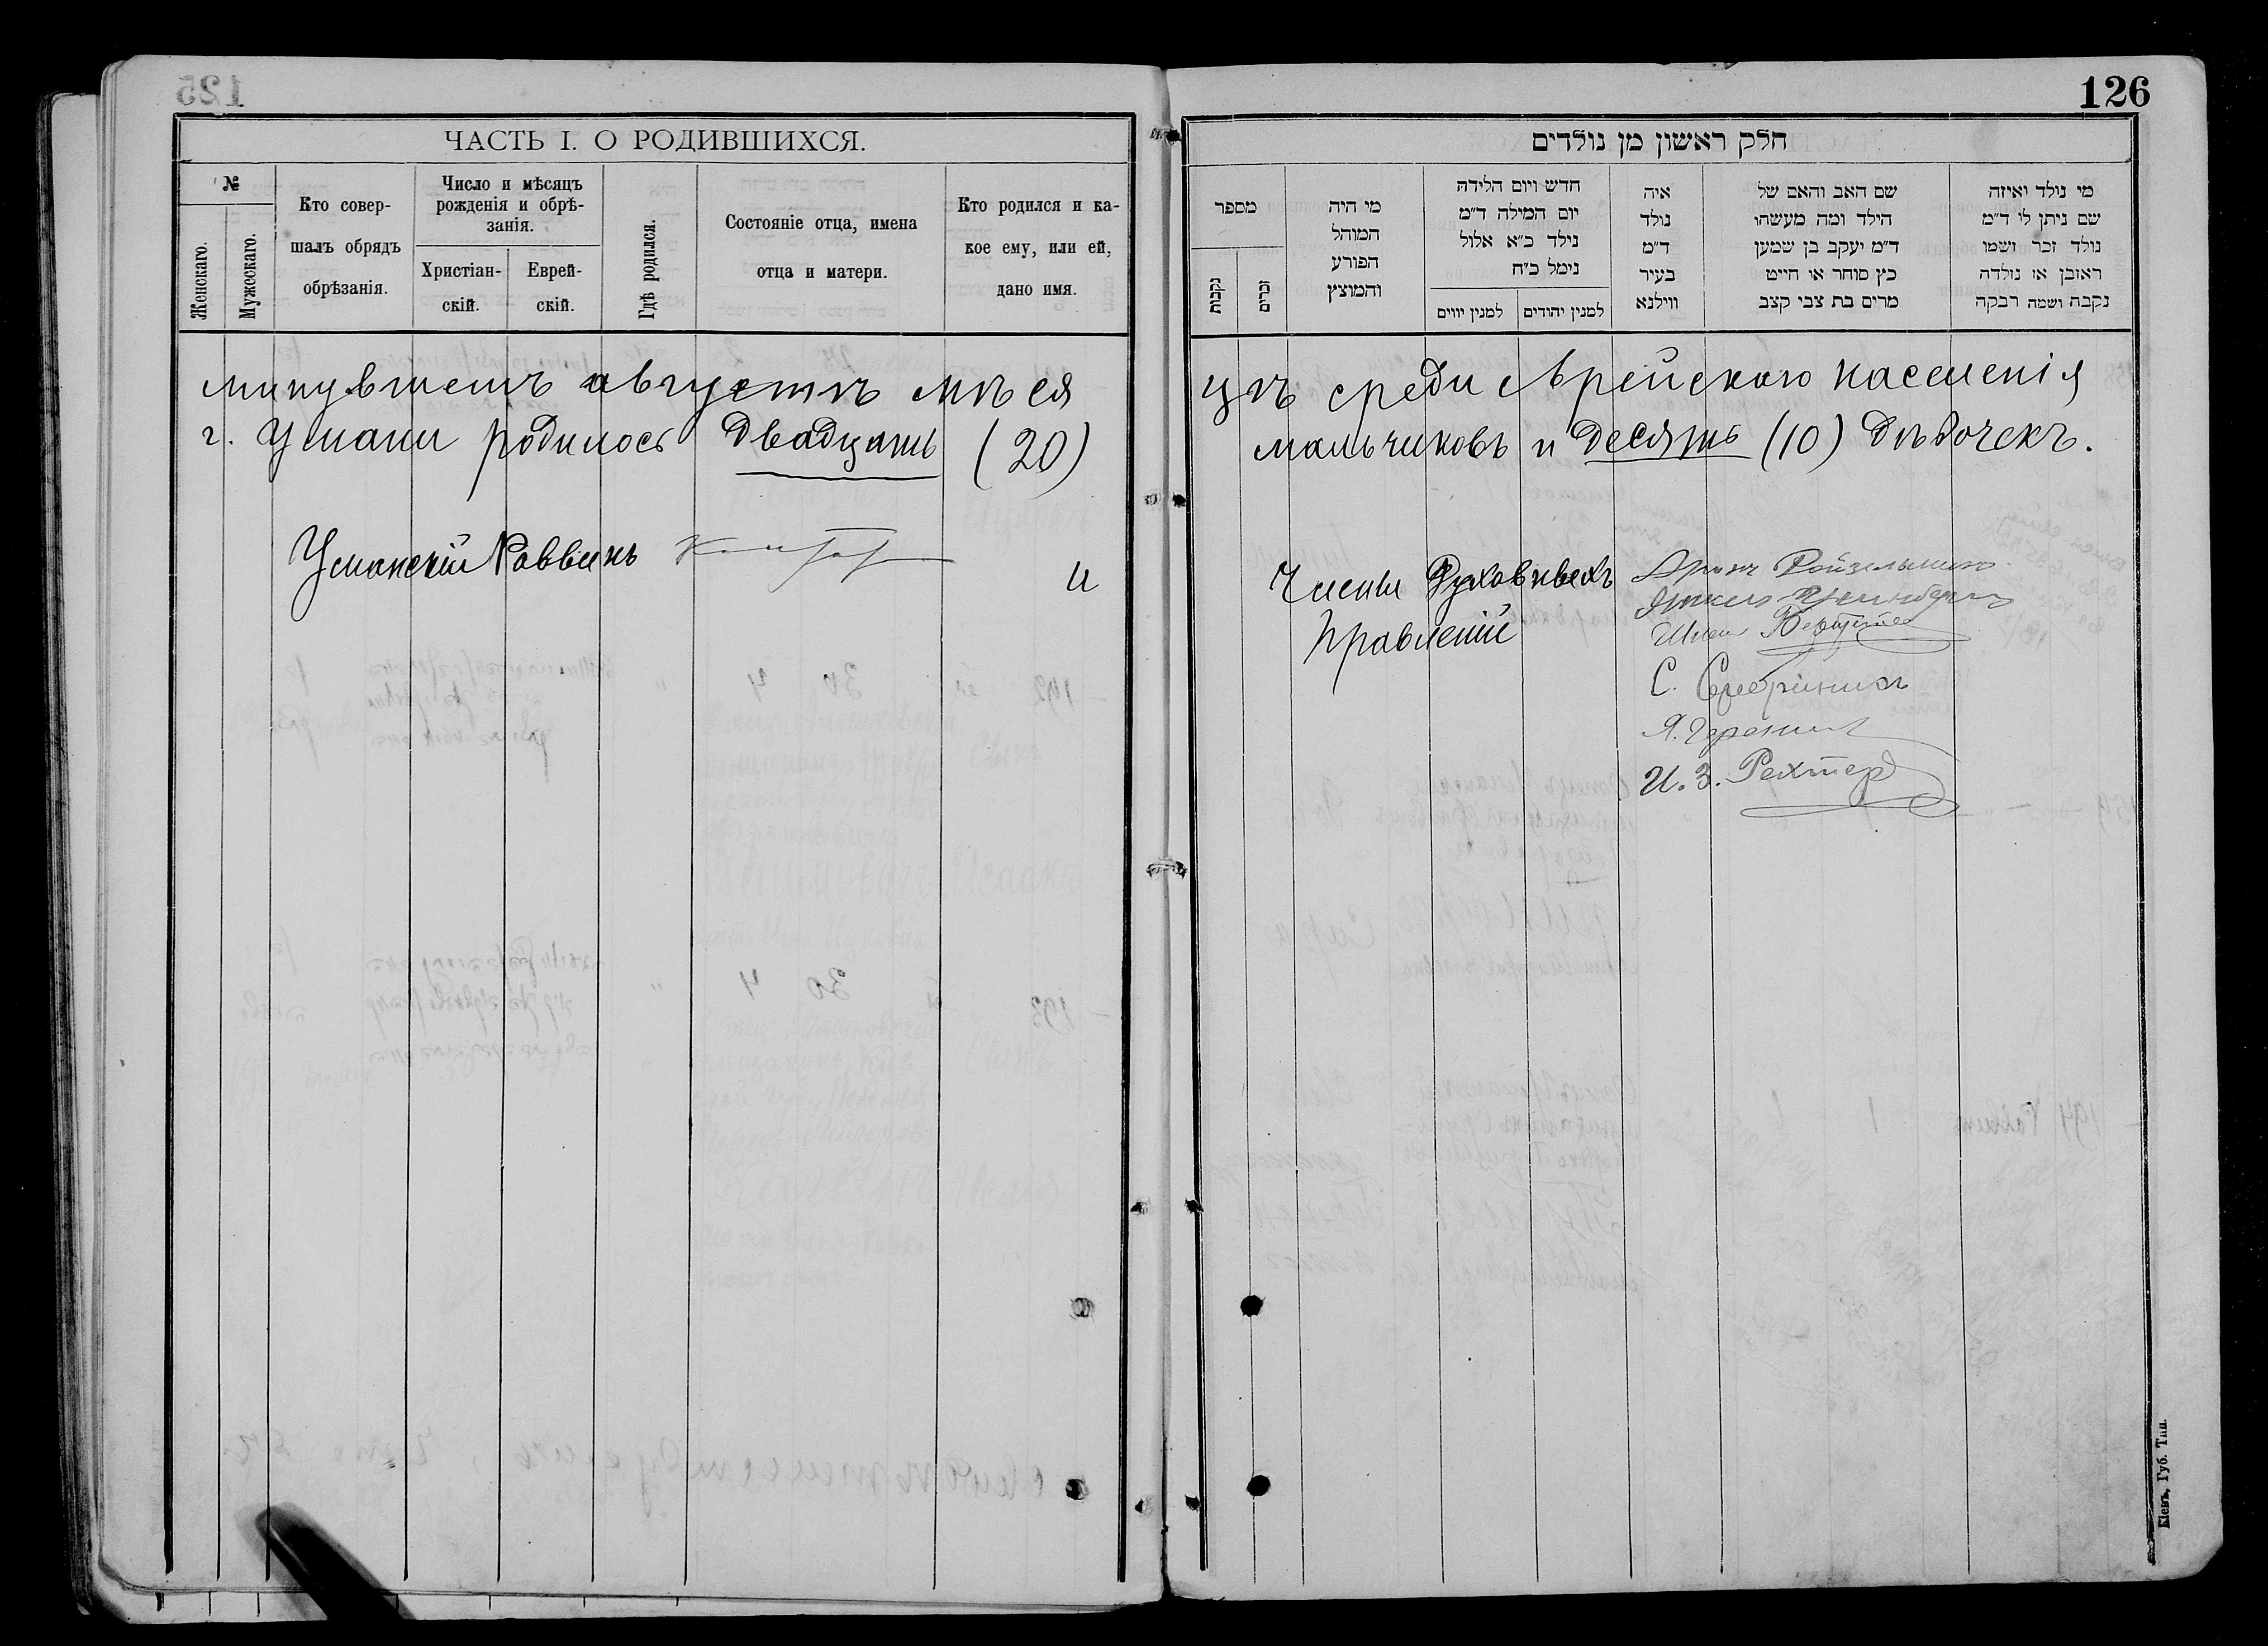 126
ЧАСТЬ I. О РОДИВШИХСЯ.
№
Женскаго.
Мужескаго.
Кто совер-
шалъ обрядъ
обрѣзанія.
Число и мѣсяцъ
рожденія и обрѣ-
занія.
Христіан-
скій.
Еврей-
скій.
Гдѣ родился.
Состояніе отца, имена
отца и матери.
Кто родился и ка-
кое ему, или ей,
дано имя.
минувшемъ августѣ мѣся
г. Умани родилось двадцать (20)
Уманскій Раввинъ
и
חלק ראשון מן נולדים
מספר
נקבות
זכרים
מי היה
המוהל
הפורע
והמוצץ
חדש ויום הלידה
יום המילה ד״מ
נילד כ״א אלול
נימל כ״ח
למנין יווים
למנין יהודים
איה
נולד
ד״מ
בעיר
ווילנא
שם האב והאם של
הילד ומה מעשהו
ד״מ יעקב בן שמען
כץ סוחר או חייט
מרים בת צבי קצב
מי נולד ואיזה
שם ניתן לו ד״מ
נולד זכר ושמו
ראובן או נולדה
נקבה ושמה רבקה
цѣ среди еврейскаго населенія
мальчиковъ и десять (10) дѣвочекъ.
Члены Духовныхъ
Правленій
С.
И. З. Рехтер
Кіевъ, Губ. Тип.